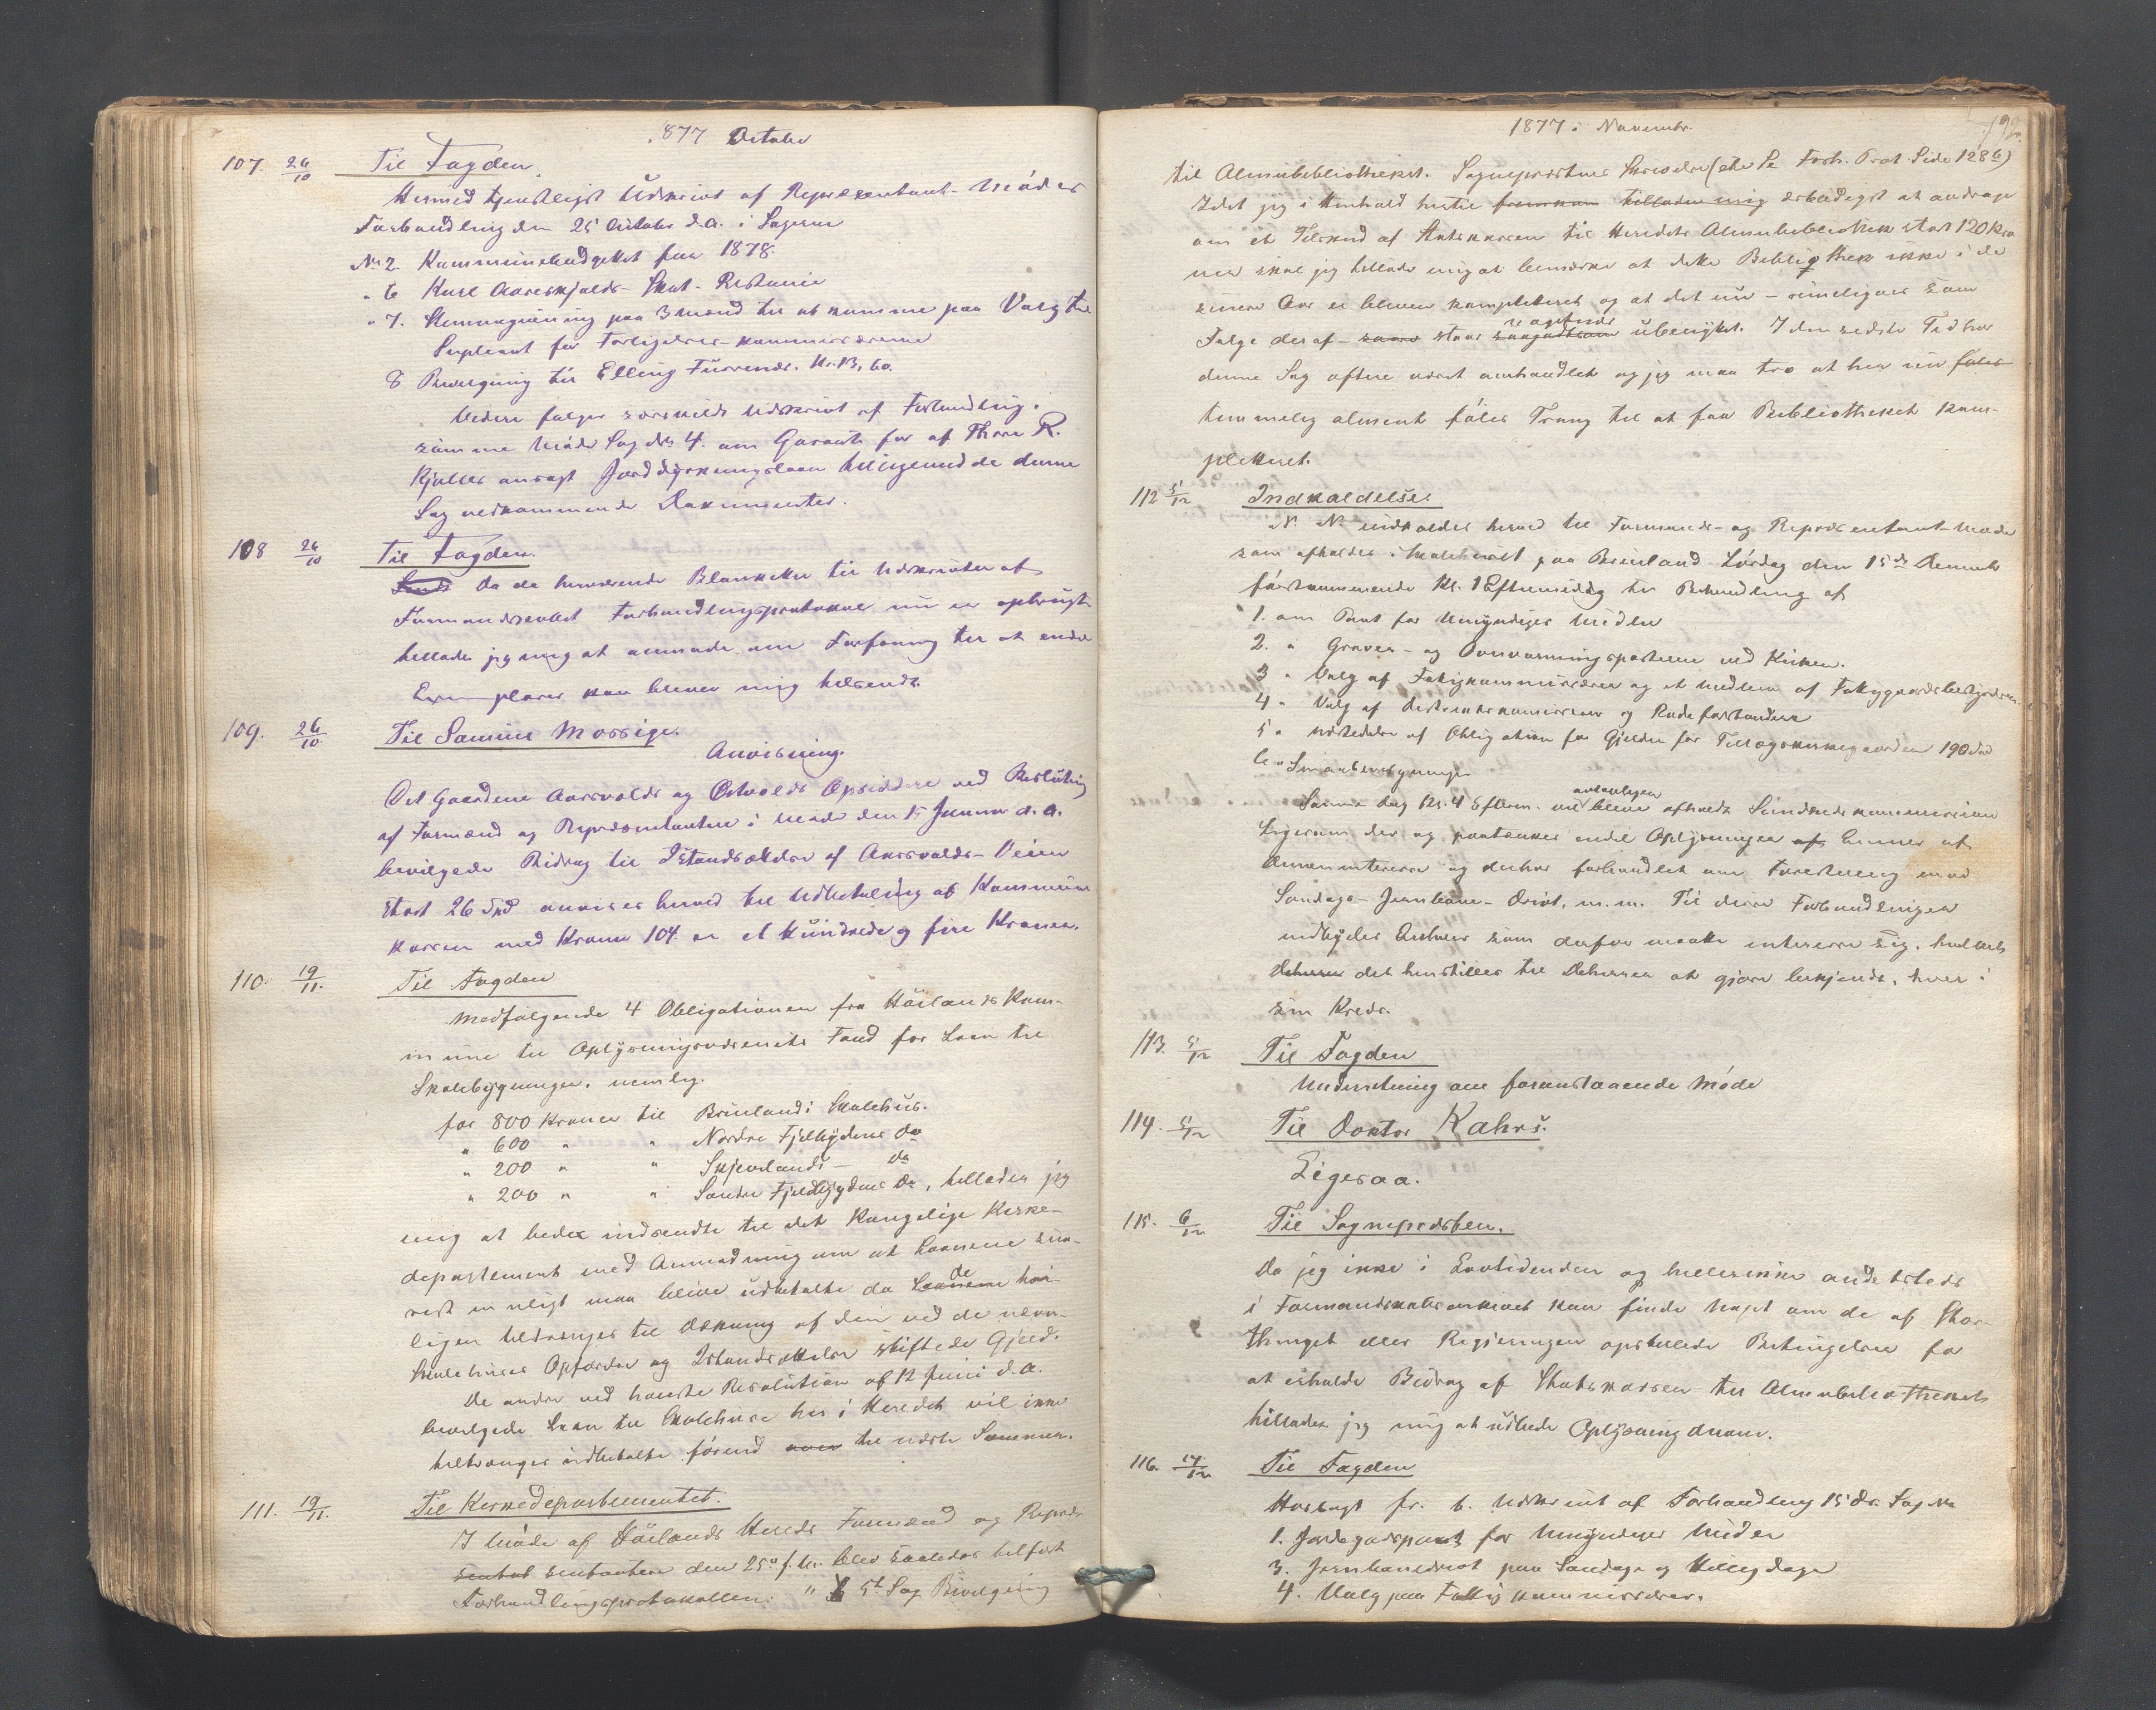 1877 October
107. 26/10 Til Fogden.
Hermed tjenstligst Udskrivt af Repræsentant-Mødes
Forhandling den 25 October d.A. i Sagerne
No 2. Kommunebudgettet for 1878.
" 6 Karl Aareskjolds-Skat-Restance
" 7. Stemmegivning paa 3 Mænd til at komme paa Valg til
Supleant for Forligelses-kommissærerne
8 Bevilgning til Elling Kr. 13,60.
Videre følger særskilt Udskrivt af Forhandling i
samme Møde Sag No 4. om Garanti for af Thore R.
Kjølles ansøgt Jorddyrkningslaan tilligemed de denne
Sag vedkommende Dokumenter.
108 26/10 Til Fogden.
Da de herværende Blanketter til Udskrivter af
Formandskabets Forhandlingsprotokol nu er opbrugt
tillader jeg mig at anmode om Forføining til at endel
Exemplarer kan bleven mig tilsendt.
109. 26/10. Til Samuel Mossige.
Anvisning.
Det Gaardene Aarsvolds og Østvolds Opsiddere ved Beslutning
af Formænd og Repræsentanter i Møde den 15 Januar d.A.
bevilgede Bidrag til Istandsættelse af Aarsvolds-Veien
stort 26 Spd anvises herved til Udbetaling af Kommune
kassen med Kroner 104. er et hundrede og fire Kroner.
110. 19/11. Til Fogden
Medfølgende 4 Obligationer fra Høilands Kom-
mune til Oplysningsvæsenets Fond for Laan til
Skolebygninger, nemlig.
for 800 Kroner til Bruelands Skolehus.
" 600 " " Nordre Fjeldbygdens Do
" 200 " " Skjævelands – Do
" 200 " " Søndre Fjeldbygdens Do, tillader jeg
mig at bede indsendte til det Kongelige Kirke-
departement med Anmodning om at Laanene sna-
rest muligt maa blive udbetalte da Laanene de høi-
ligen tiltrænges til Dækning af den ved de nævn-
Skolehuses Opførelse og Istandsættelse stiftede Gjæld.
De andre ved høieste Resolution af 12 Juni d.A.
bevilgede Laan til Skolehuse her i Heredet vil ikke
tiltrænges udbetalte førend til næste Sommer.
111. 19/11. Til Kirkedepartementet.
I Møde af Høilands Hereds Formænd og Repræ-
sentanter den 25de f.M. blev saaledes tilført
Forhandlingsprotokollen: " 5t Sag Bevilgning
1877 i Novembr.
192.
til Almubibliotheket. Sogneprestens Skrivelse (etc Se Forh. Prot. Side 128 b)
Idet jeg i Henhold hertil tillader mig ærbødigst at andrage
om et Tilskud af Statskassen til Heredets Almubibliothek stort 120 Kro
ner skal jeg tillade mig at bemærke at dette Bibliothek ikke i de
senere Aar er bleven kompletteret og at det nu – rimeligvis som
Følge deraf – staar saagodtsom ubenyttet. I den sidste Tid har
denne Sag oftere været omhandlet og jeg maa tro at her nu føles
temmelig alment føles Trang til at faa Bibliotheket kom-
pletteret.
112 5/12 Indkaldelse.
N. N. indkaldes herved til Formands- og Repræsentant-Møde
som afholdes i Skolehuset paa Brueland Lørdag den 15de Decembr
førstkommende Kl. 1 Eftermiddag til Behandling af
1. om Pant for Umyndiges Midler
2. " Graver- og Ovnvarmningsposterne ved Kirken.
3 " Valg af Fattigkommissærer og et Medlem af Fattiggaardsbestyrelsen.
4 " Valg af Distriktskommissær og Rodeforstandere
5 " Udstedelse af Obligation for Gjælden for Tillægskirkegaarden 190 Spd
6 " Smaabevilgninger
Samme dag Kl. 4 Efterm. vil antagelig blive afholdt Sundhedskommission
Ligesom der og paatænkes endel Oplysninger af
Almeninteresse og derhos forhandlet om Forestilling mod
Søndags-Jernbane-Drivt, m.m. Til disse Forhandlinger
indbydes Enhver som derfor maatte interessere sig, hvilket
det henstilles til Deherrer at gjøre bekjendt, hver i
sin Kreds.
113. 5/12 Til Fogden
Underretning om foranstaaende Møde
114. 5/12 Til Doktor Kahrs.
Ligesaa.
115. 6/12 Til Sognepresten.
Da jeg ikke i Lovtidenden og heller ikke andetsteds
i Formandskabsarkivet kan finde Noget om de af Stor-
thinget eller Regjeringen opstillede Betingelser for
at erholde Bidrag af Statskassen til Almubibliotheket
tillader jeg mig at udbede Oplysning derom.
116. 17/12 Til Fogden
Hoslagt fr. b. Udskrivt af Forhandling 15 ds. Sag No
1. Jordegodspant for Umyndiges Midler
3. Jernbanedrivt paa Søndage og Helligdage
4. Valg paa Fattigkommissærer.